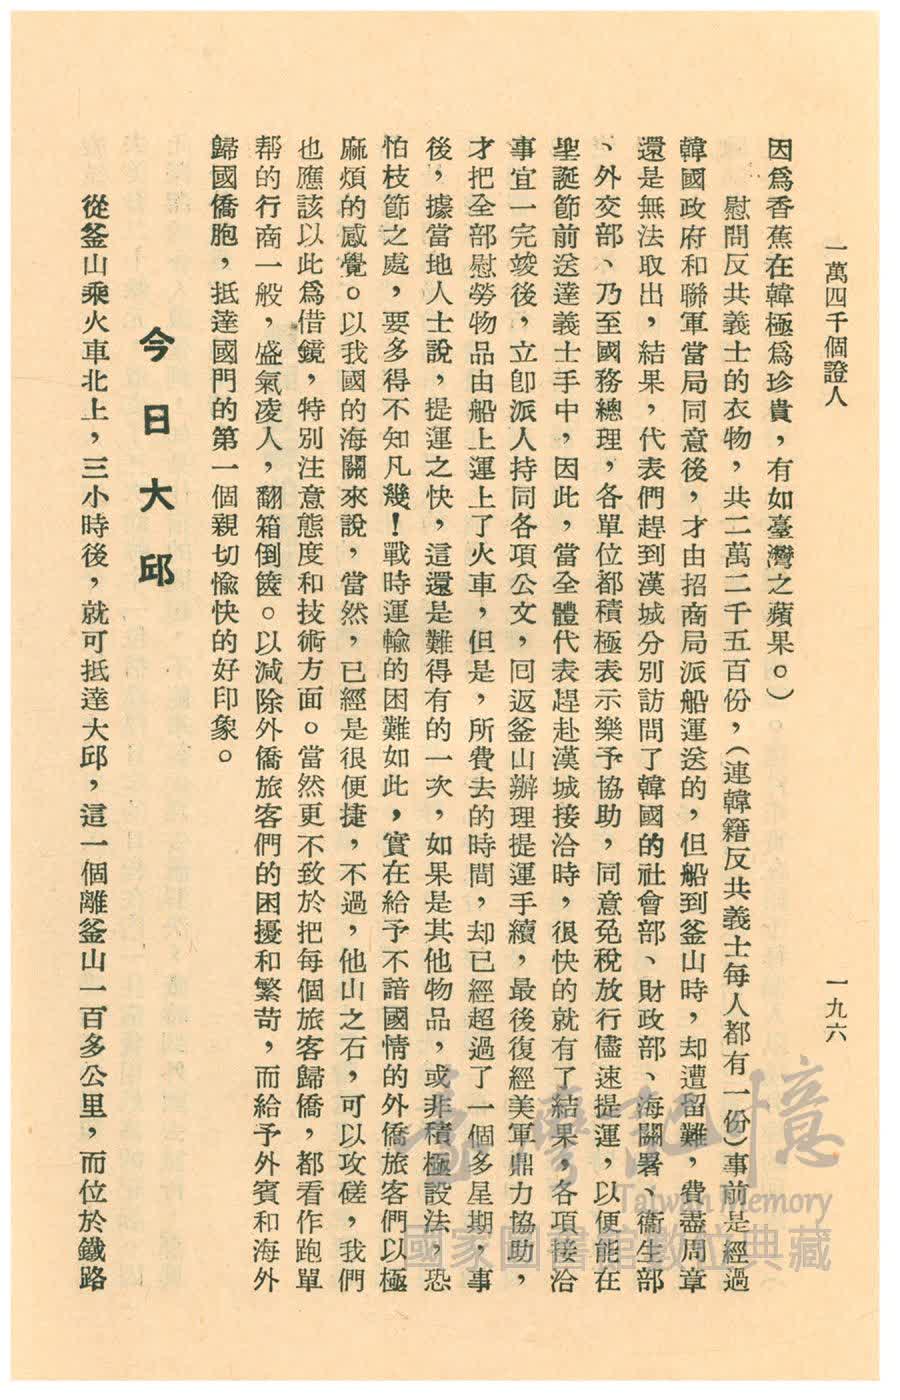 一萬四千個證人
一九六
因爲香蕉在韓極爲珍貴，有如臺灣之蘋果。）
慰問反共義士的衣物，共二萬二千五百份，（連韓籍反共義士每人都有一份）事前是經過
韓國政府和聯軍當局同意後，才由招商局派船運送的，但船到釜山時，却遭留難，費盡周章
還是無法取出，結果，代表們趕到漢城分別訪問了韓國的社會部、財政部、海關署、衞生部
、外交部、乃至國務總理，各單位都積極表示樂予協助，同意免稅放行儘速提運，以便能在
聖誕節前送達義士手中，因此，當全體代表趕赴漢城接洽時，很快的就有了結果，各項接洽
事宜一完竣後，立卽派人持同各項公文，回返釜山辦理提運手續，最後復經美軍鼎力協助，
才把全部慰勞物品由船上運上了火車，但是，所費去的時間，却已經超過了一個多星期，事
後，據當地人士說，提運之快，這還是難得有的一次，如果是其他物品，或非積極設法，恐
怕枝節之處，要多得不知凡幾！戰時運輸的困難如此，實在給予不諳國情的外僑旅客們以極
麻煩的感覺。以我國的海關來說，當然，已經是很便捷，不過，他山之石，可以攻磋，我們
也應該以此爲借鏡，特別注意態度和技術方面。當然更不致於把每個旅客歸僑，都看作跑單
帮的行商一般，盛氣凌人，翻箱倒篋。以減除外僑旅客們的困擾和繁苛，而給予外賓和海外
歸國僑胞，抵達國門的第一個親切愉快的好印象。
今日大邱
從釜山乘火車北上，三小時後，就可抵達大邱，這一個離釜山一百多公里，而位於鐵路
臺灣記憶
Taiwan Memory
國家圖書館數位典藏